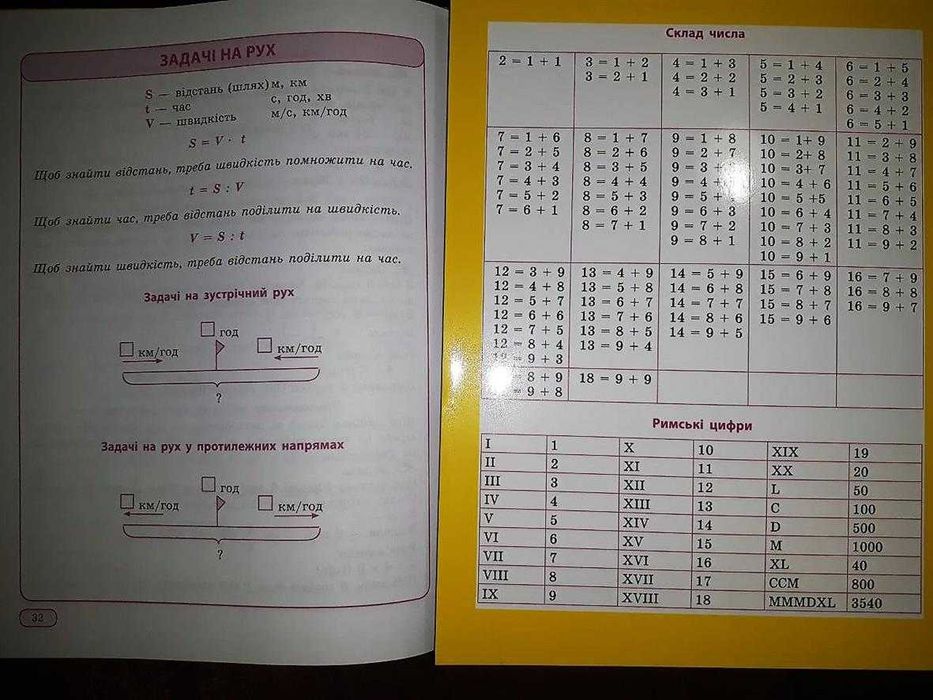 ЗАДАЧІ НА РУХ
S — відстань (шлях) м, км
t — час с, год, хв
V — швидкість м/с, км/год
S = V · t
Щоб знайти відстань, треба швидкість помножити на час.
t = S : V
Щоб знайти час, треба відстань поділити на швидкість.
V = S : t
Щоб знайти швидкість, треба відстань поділити на час.
Задачі на зустрічний рух
год
км/год км/год
?
Задачі на рух у протилежних напрямах
год
км/год км/год
?
32
Склад числа
2 = 1 + 1
3 = 1 + 2
3 = 2 + 1
4 = 1 + 3
4 = 2 + 2
4 = 3 + 1
5 = 1 + 4
5 = 2 + 3
5 = 3 + 2
5 = 4 + 1
6 = 1 + 5
6 = 2 + 4
6 = 3 + 3
6 = 4 + 2
6 = 5 + 1
7 = 1 + 6
7 = 2 + 5
7 = 3 + 4
7 = 4 + 3
7 = 5 + 2
7 = 6 + 1
8 = 1 + 7
8 = 2 + 6
8 = 3 + 5
8 = 4 + 4
8 = 5 + 3
8 = 6 + 2
8 = 7 + 1
9 = 1 + 8
9 = 2 + 7
9 = 3 +
9 = 4 +
9 = 5 +
9 = 6 + 3
9 = 7 + 2
9 = 8 + 1
10 = 1+ 9
10 = 2+ 8
10 = 3+ 7
10 = 4 + 6
10 = 5 +5
10 = 6 + 4
10 = 7 + 3
10 = 8 + 2
10 = 9 + 1
11 = 2 + 9
11 = 3 + 8
11 = 4 + 7
11 = 5 + 6
11 = 6 + 5
11 = 7 + 4
11 = 8 + 3
11 = 9 + 2
12 = 3 + 9
12 = 4 + 8
12 = 5 + 7
12 = 6 + 6
12 = 7 + 5
12 = 8 + 4
= 9 + 3
13 = 4 + 9
13 = 5 + 8
13 = 6 + 7
13 = 7 + 6
13 = 8 + 5
13 = 9 + 4
14 = 5 + 9
14 = 6 + 8
14 = 7 + 7
14 = 8 + 6
14 = 9 + 5
15 = 6 + 9
15 = 7 + 8
15 = 8 + 7
15 = 9 + 6
16 = 7 + 9
16 = 8 + 8
16 = 9 + 7
= 8 + 9
= 9 + 8
18 = 9 + 9
Римські цифри
I 1 X 10 XIX 19
II 2 XI 11 XX 20
III 3 XII 12 L 50
IV 4 XIII 13 C 100
V 5 XIV 14 D 500
VI 6 XV 15 M 1000
VII 7 XVI 16 XL 40
VIII 8 XVII 17 CCM 800
IX 9 XVIII 18 MMMDXL 3540